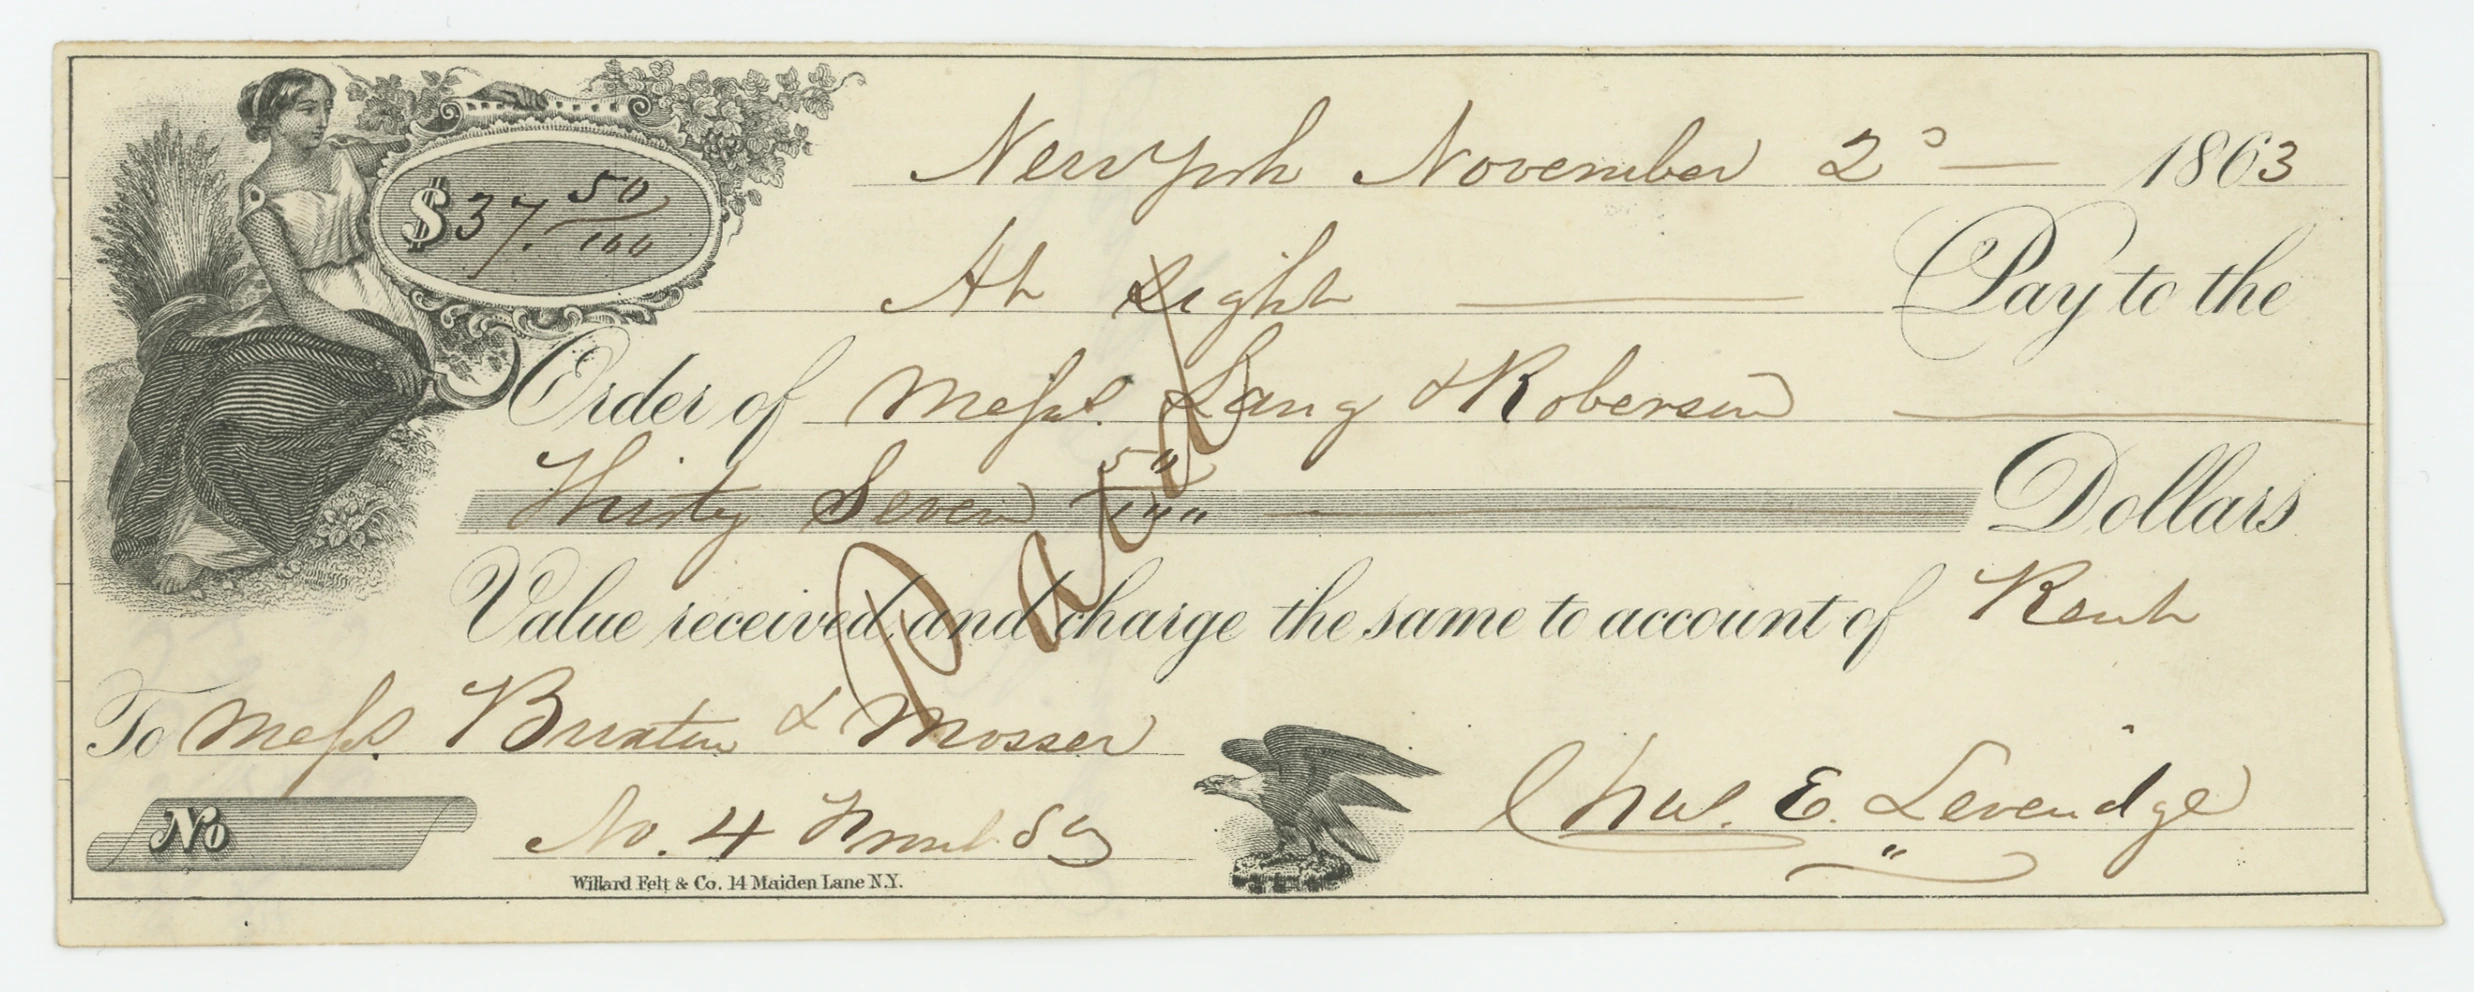 $37. 50/100
New York November 2d — 1863
At Sight — Pay to the
Order of Mess. Lang & Roberson
Thirty Seven 50/100 — Dollars
Value received, and charge the same to account of Rent
Paid
To Mess. & Mosser
No
No. 4
Chas. E. Levendge
Willard Felt & Co. 14 Maiden Lane N.Y.